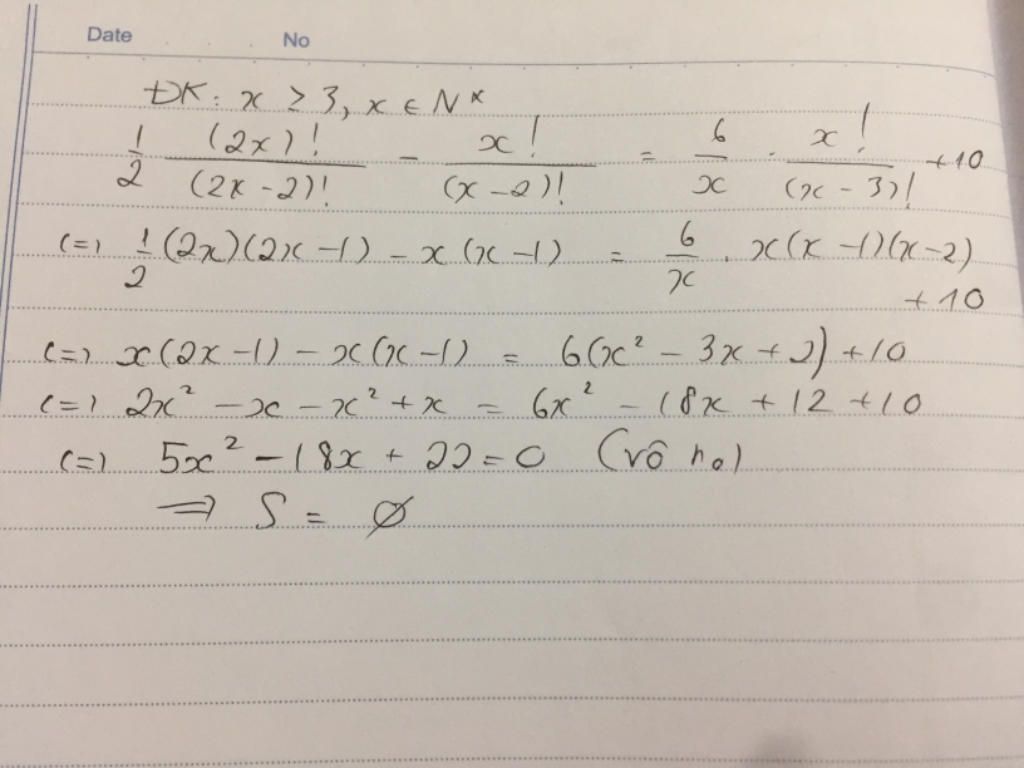 Date No
ĐK: x ≥ 3, x ∈ N*
1/2 (2x)!/(2x-2)! - x!/(x-2)! = 6/x . x!/(x-3)! +10
(=) 1/2 (2x)(2x-1) - x(x-1) = 6/x . x(x-1)(x-2)
+10
(=) x(2x-1) - x(x-1) = 6(x² - 3x + 2) +10
(=) 2x² - x - x² + x = 6x² - 18x + 12 + 10
(=) 5x² - 18x + 22 = 0 (vô no)
=> S = ∅